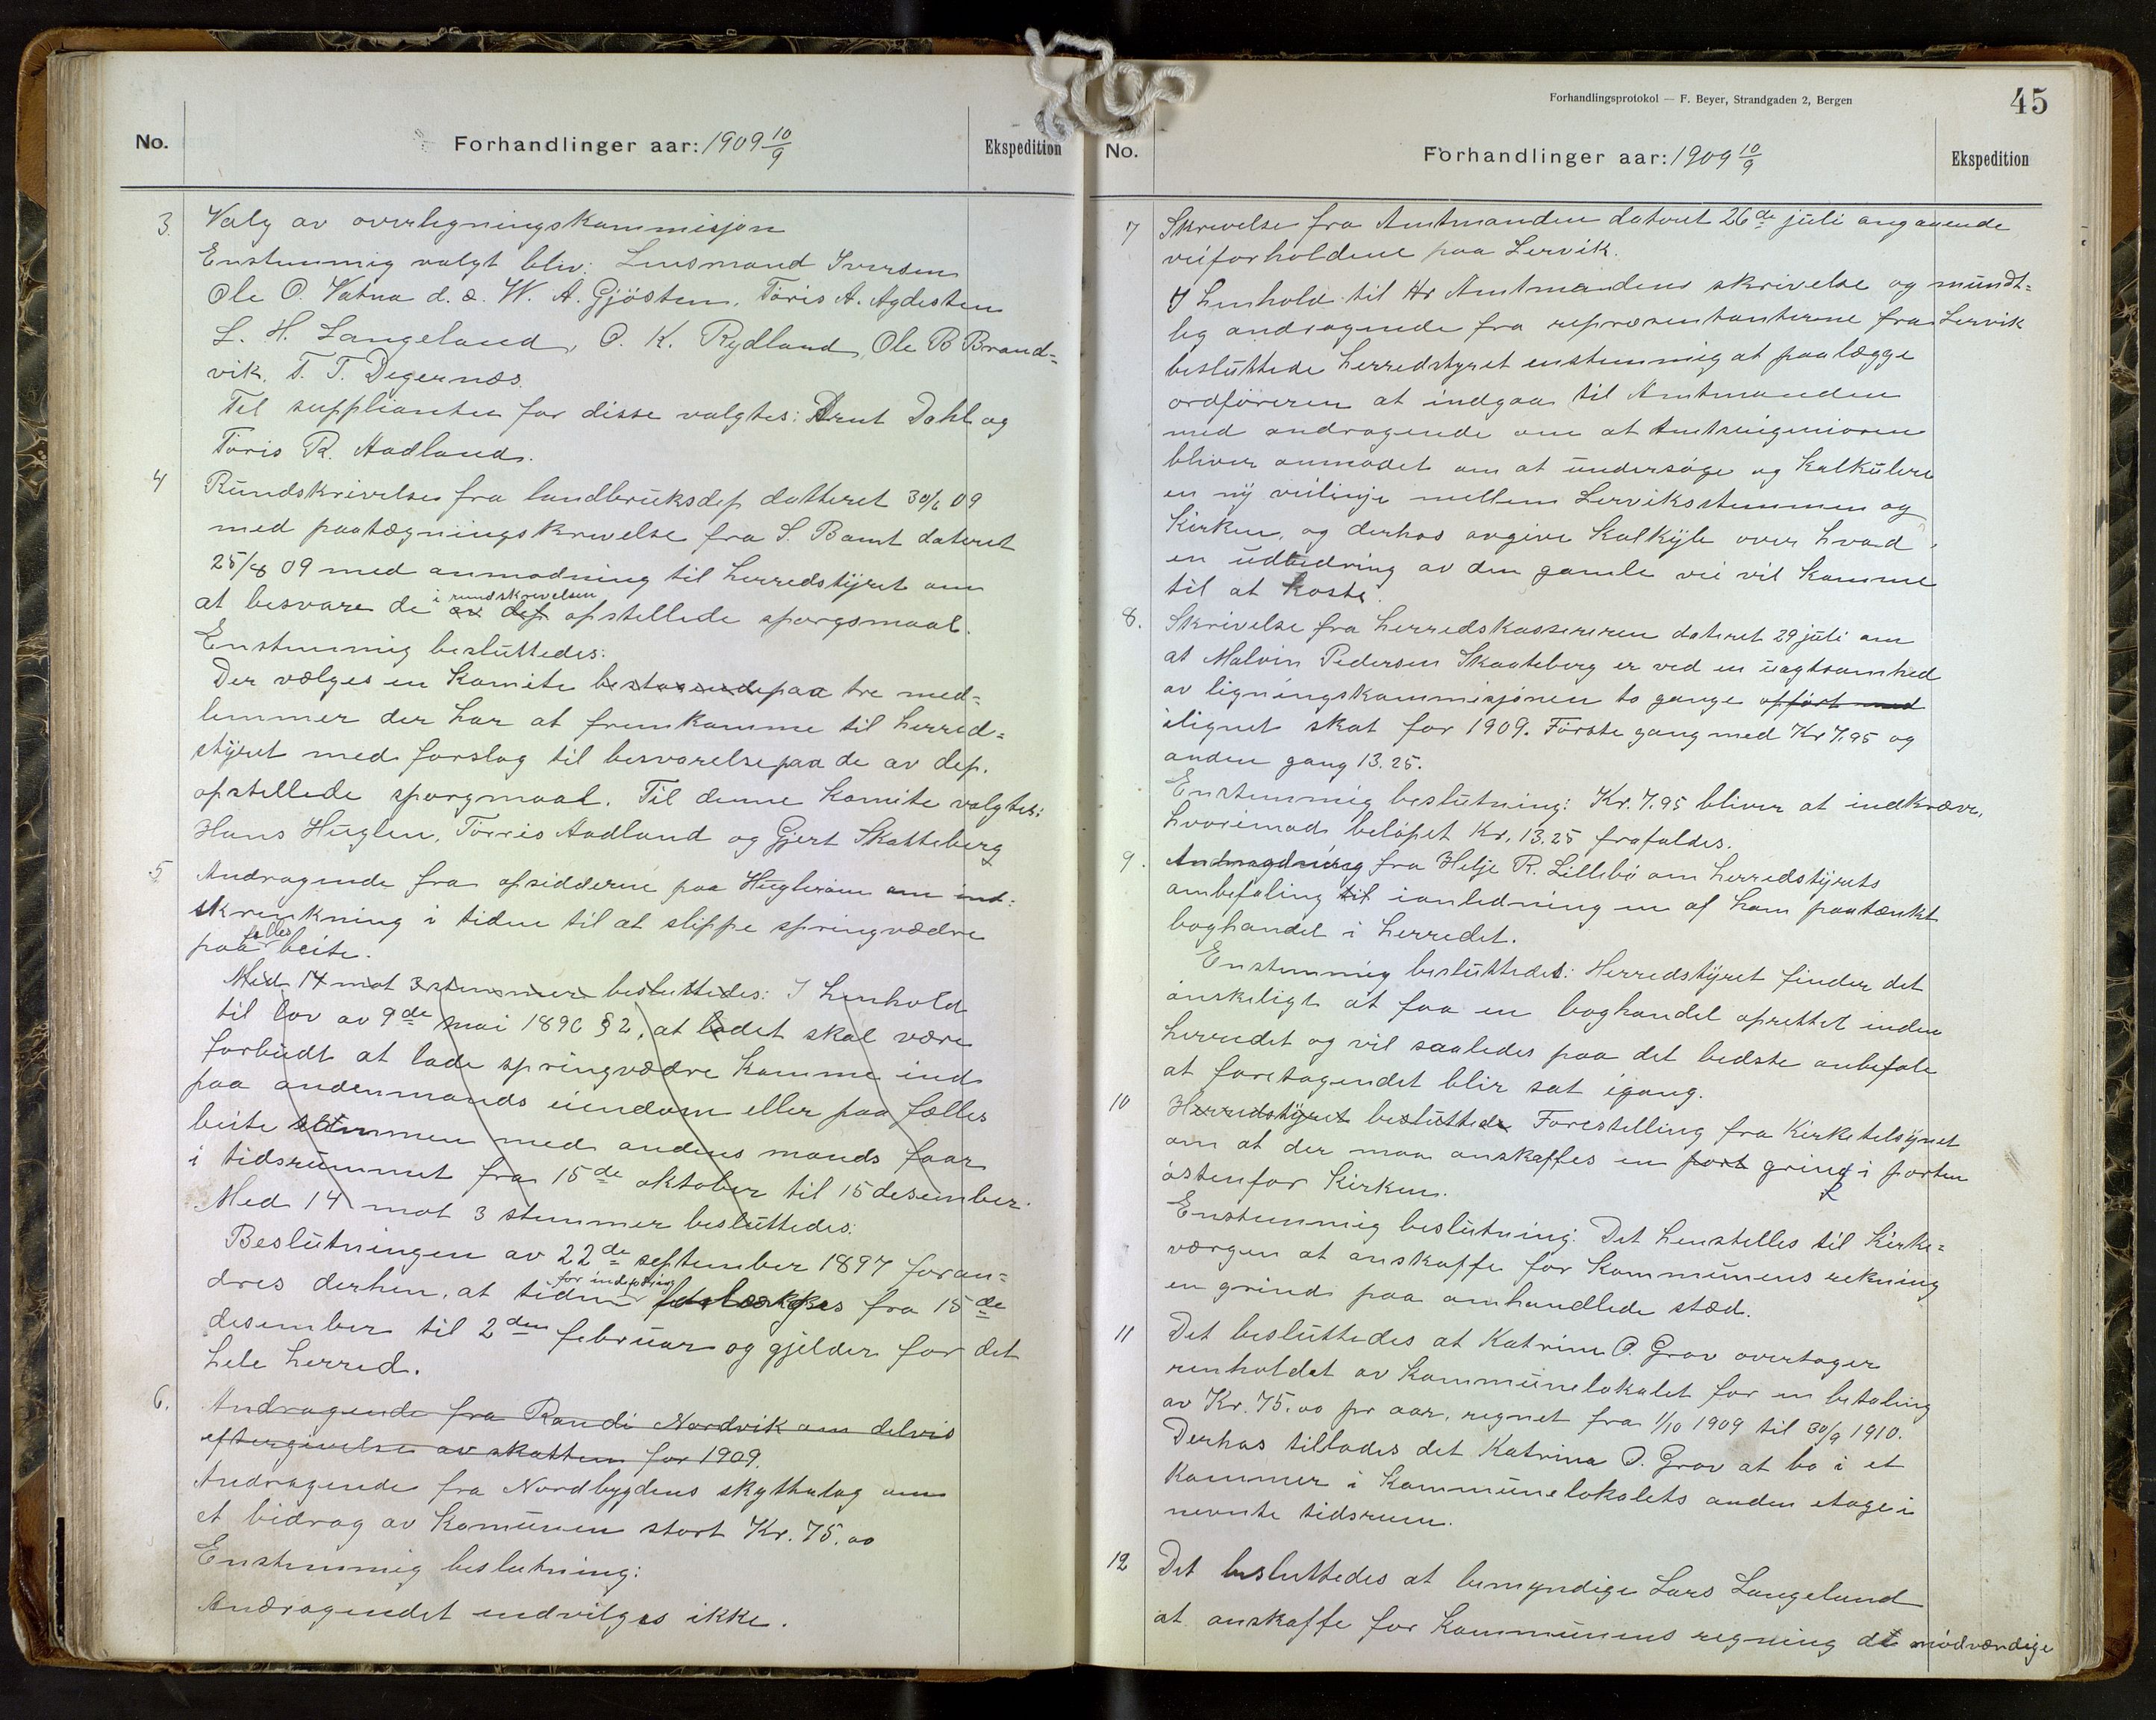 No.
Forhandlinger aar: 1909 10/9
Ekspedition
3. Valg av overligningskommisjon
Enstemmig valgt blev: Lensmand Iversen
Ole O. Vatna d. æ. W. A. Gjösten, Töris A. Agdesten
L. H. Langeland, O. K. Rydland, Ole B Brand-
vik, T. T. Degernæs.
Til supplianter for disse valgtes: Arnt Dahl og
Töris R. Aadland.
4 Rundskrivelse fra landbruksdep datteret 30/6 09
med paategningsskrivelse fra S. Bamt dateret
25/8 09 med anmodning til herredstyret om
i rundskrivelsen
at besvare de av dep opstellede sporgsmaal.
Enstemmig besluttedes:
Der vælges en komite bestaaende paa tre med-
lemmer der har at fremkomme til herred-
styret med forslag til besvarelse paa de av dep.
opstellede sporgmaal. Til denne komite valgtes:
Hans Huglen, Törris Aadland og Gjert Skatteberg
5 Andragende fra opsidderne paa Hugleröen om ind-
skrenkning i tiden til at slippe springvædre
fælles
paa beite.
Med 14 mot 3 stemmer besluttedes: I henhold
til lov av 9de mai 1890 § 2, at ladet skal være
forbudt at lade springvædre komme ind
paa andenmands eiendom eller paa fælles
beite sammen med andens mands faar
i tidsrummet fra 15de oktober til 15 desember.
Med 14 mot 3 stemmer besluttedes:
Beslutningen av 22de september 1897 foran-
for indsp
dres derhen, at tiden forlænges fra 15de
desember til 2den februar og gjelder for det
hele herred.
6. Andragende fra Randi Nordvik om delvis
eftergivelse av skatten for 1909.
Andragende fra Nordbygdens skytterlag om
et bidrag av komunen stort Kr. 75.00
Enstemmig beslutning:
Andragendet indvilges ikke.
Forhandlingsprotokol — F. Beyer, Strandgaden 2, Bergen
45
No.
Forhandlinger aar: 1909 10/9
Ekspedition
7 Skrivelse fra Amtmanden dateret 26de juli angaaende
veiforholdene paa Lervik.
I henhold til Hr Amtmandens skrivelse og mundt-
lig andragende fra repræsentanterne fra Lervik
besluttede herredstyret enstemmig at paalægge
ordföreren at indgaa til Amtmanden
med andragende om at Amtsingeniören
bliver anmodet om at undersöge og kalkulere
en ny veilinje mellem Lerviksstemmen og
Kirken, og derhos avgive kalkyle over hvad
en udbedring av den gamle vei vil komme
til at koste.
8. Skrivelse fra herredskassereren dateret 29 juli om
at Malvin Pedersen Skaateberg er ved en uagtsomhed
av ligningskommisjonen to gange opfört med
ilignet skat for 1909. Förste gang med Kr 7,95 og
anden gang 13.25.
Enstemmig beslutning: Kr. 7.95 bliver at indkræve,
hvorimod belöpet Kr. 13.25 frafaldes.
9. Andragdning fra Helje R. Lillebö om herredstyrets
anbefaling til i anledning en af ham paatænkt
boghandel i herredet.
Enstemmig besluttedes: Herredstyret finder det
önskeligt at faa en boghandel oprettet inden
herredet og vil saaledes paa det bedste anbefale
at foretagendet blir sat igang.
10 Herredstyret besluttede Forestilling fra Kirketilsynet
om at der maa anskaffes en port grind i porten
östenfor Kirken.
Enstemmig beslutning: Det henstelles til Kirke-
værgen at anskaffe for Kommunens rekning
en grind paa omhandlede stæd.
11 Det besluttedes at Katrine O. Grov overtager
renholdet av Kommunelokalet for en betaling
av Kr. 75.00 pr aar, regnet fra 1/10 1909 til 30/9 1910.
Derhos tillades det Katrina O. Grov at bo i et
kammer i Kommunelokalets anden etage i
nevnte tidsrum.
12 Det besluttedes at bemyndige Lars Langeland
at anskaffe for Kommunens regning de nödvændige